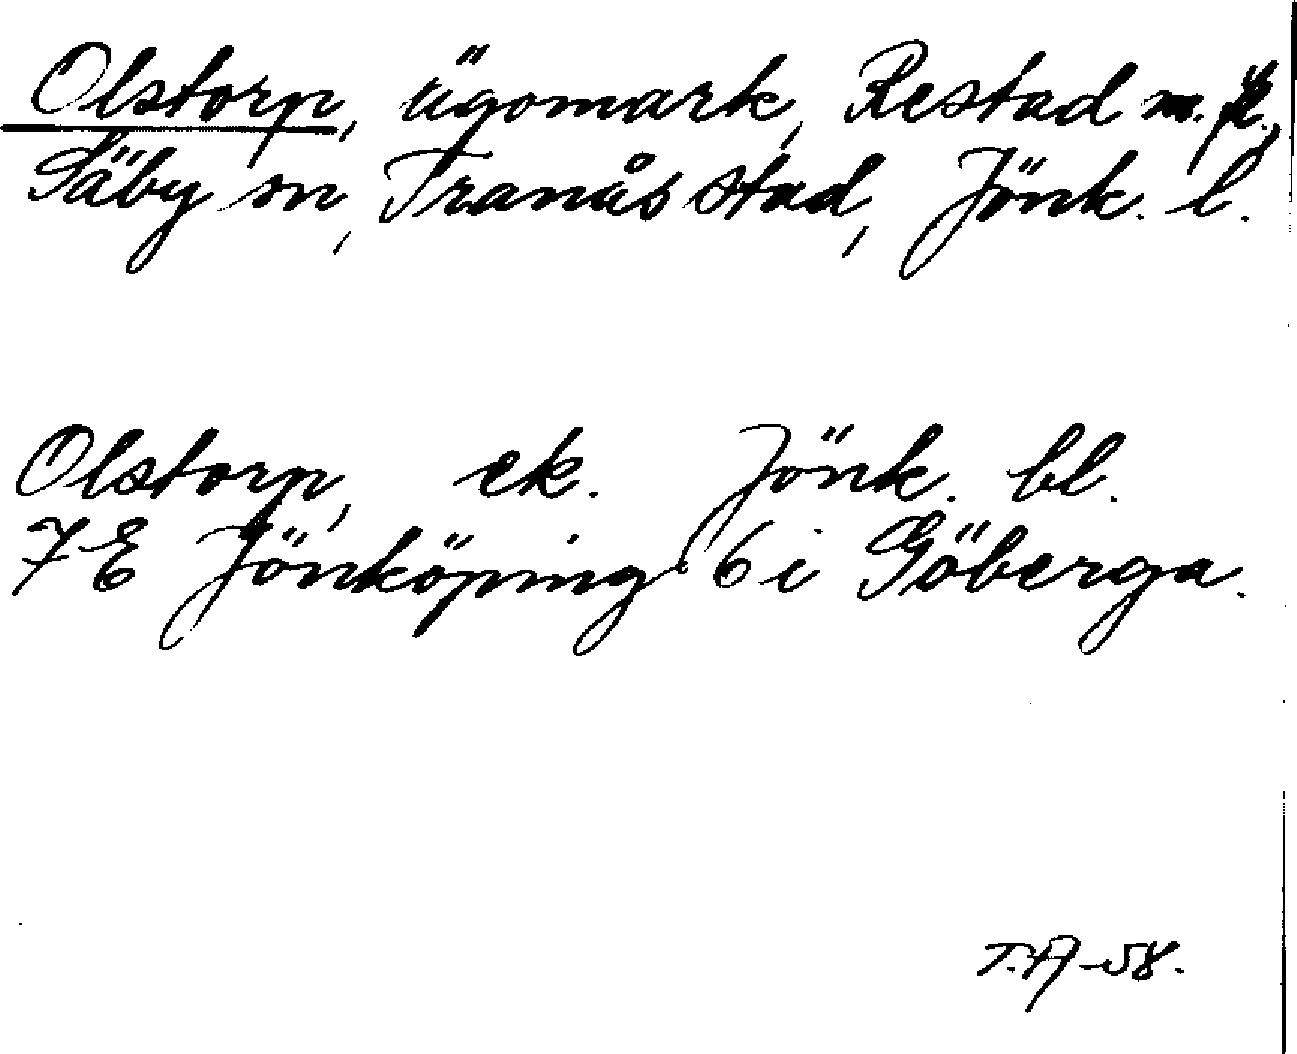 Olstorp, ägomark, Restad m. fl.,
Säby sn, Tranås stad, Jönk. l.
Olstorp, ek. Jönk. bl.
7E Jönköping 6i Göberga.
T.A-58.